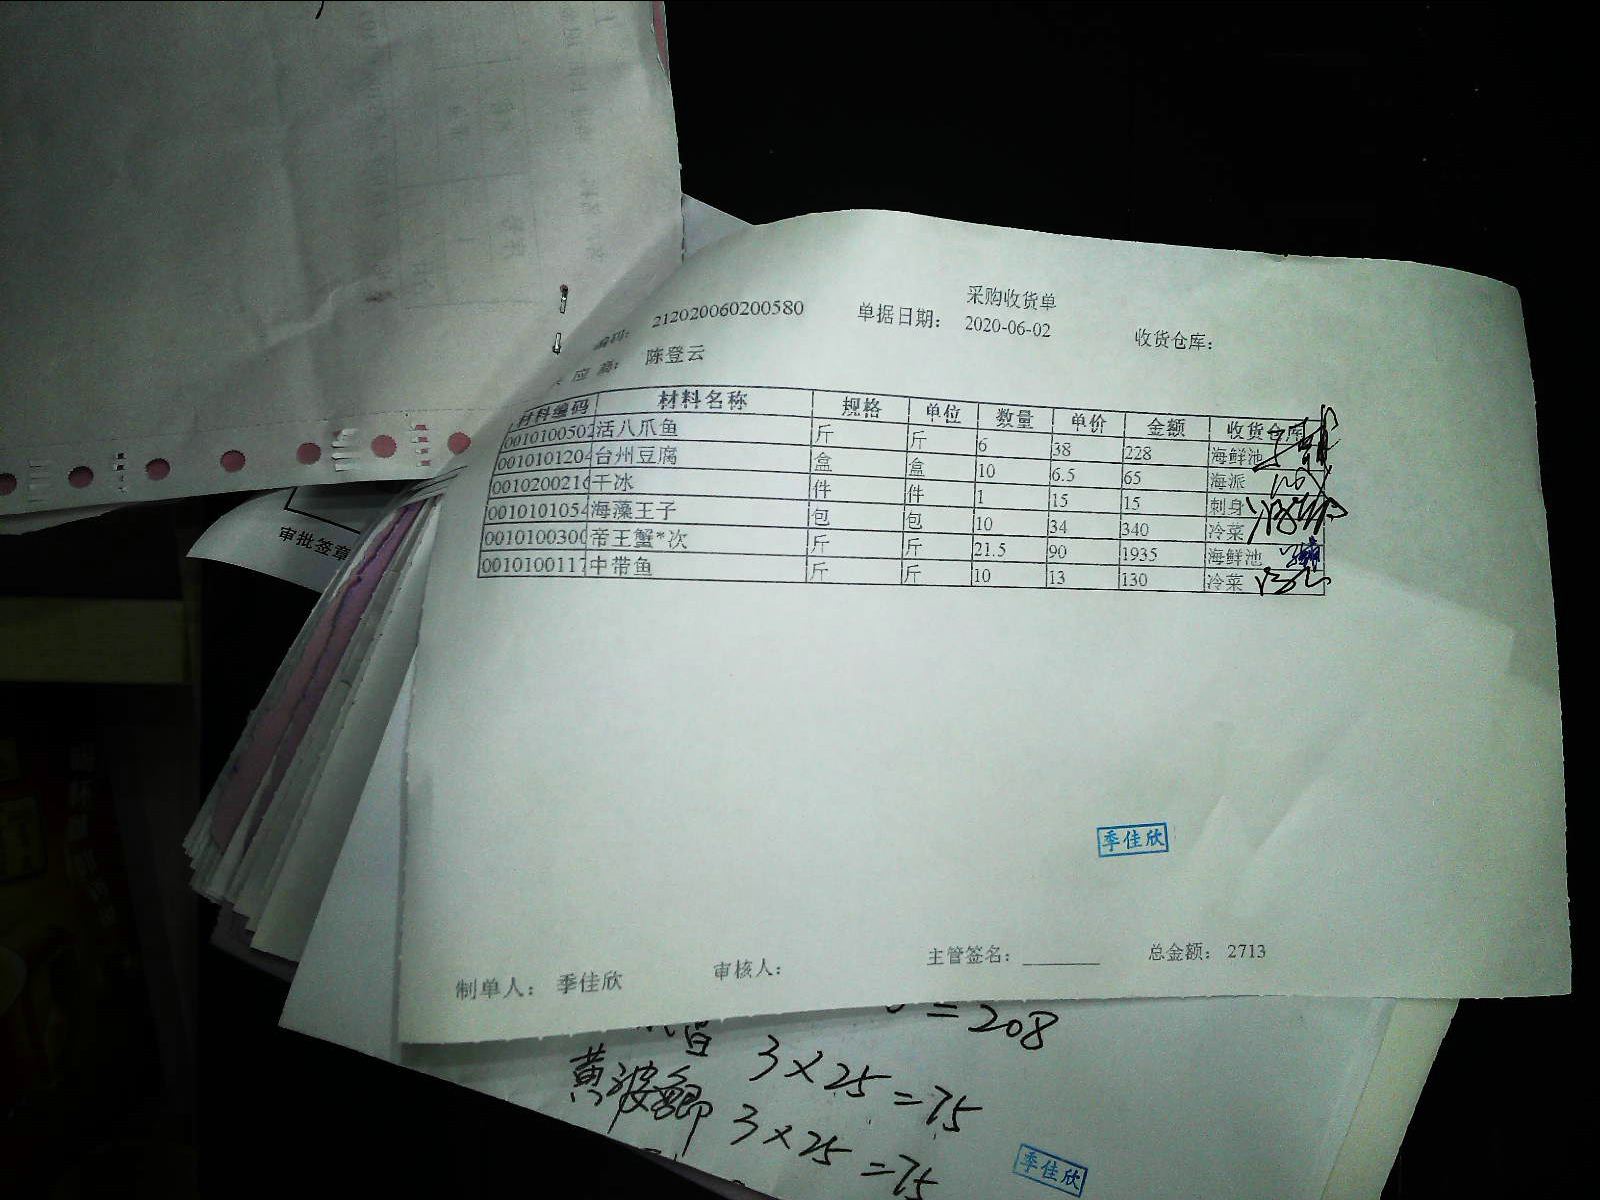 采购收货单
编码： 212020060200580 单据日期： 2020-06-02 收货仓库：
应 商： 陈登云
材料编码 材料名称 规格 单位 数量 单价 金额 收货仓库
0010100502 活八爪鱼 斤 斤 6 38 228 海鲜池
0010101204 台州豆腐 盒 盒 10 6.5 65 海派
0010200216 干冰 件 件 1 15 15 刺身
0010101054 海藻王子 包 包 10 34 340 冷菜
0010100300 帝王蟹*次 斤 斤 21.5 90 1935 海鲜池
0010100117 中带鱼 斤 斤 10 13 130 冷菜
季佳欣
制单人： 季佳欣 审核人： 主管签名：________ 总金额： 2713
审批签章
=208
3×25=75
3×25=75
季佳欣